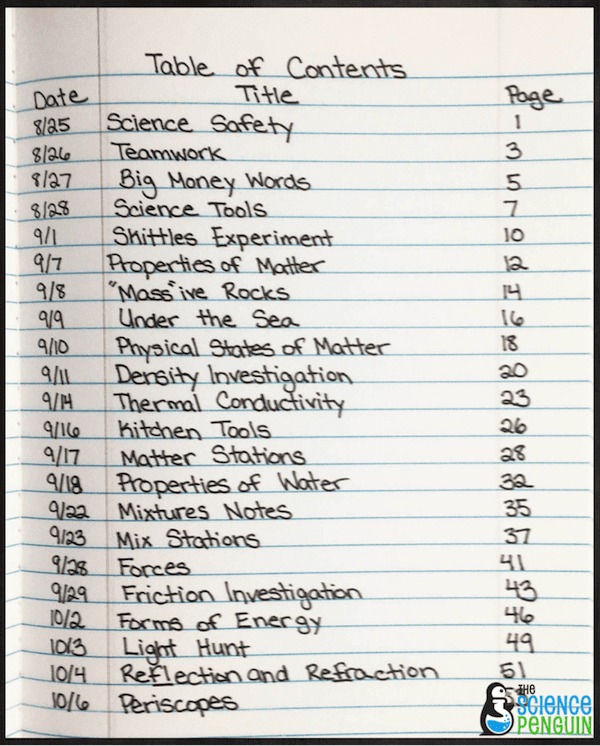 Table of Contents
Date Title Page
8/25 Science Safety 1
8/26 Teamwork 3
8/27 Big Money Words 5
8/28 Science Tools 7
9/1 Skittles Experiment 10
9/7 Properties of Matter 12
9/8 "Mass"ive Rocks 14
9/9 Under the Sea 16
9/10 Physical States of Matter 18
9/11 Density Investigation 20
9/14 Thermal Conductivity 23
9/16 Kitchen Tools 26
9/17 Matter Stations 28
9/18 Properties of Water 32
9/22 Mixtures Notes 35
9/23 Mix Stations 37
9/28 Forces 41
9/29 Friction Investigation 43
10/2 Forms of Energy 46
10/3 Light Hunt 49
10/4 Reflection and Refraction 51
10/6 Periscopes
THE
SCIENCE
PENGUIN